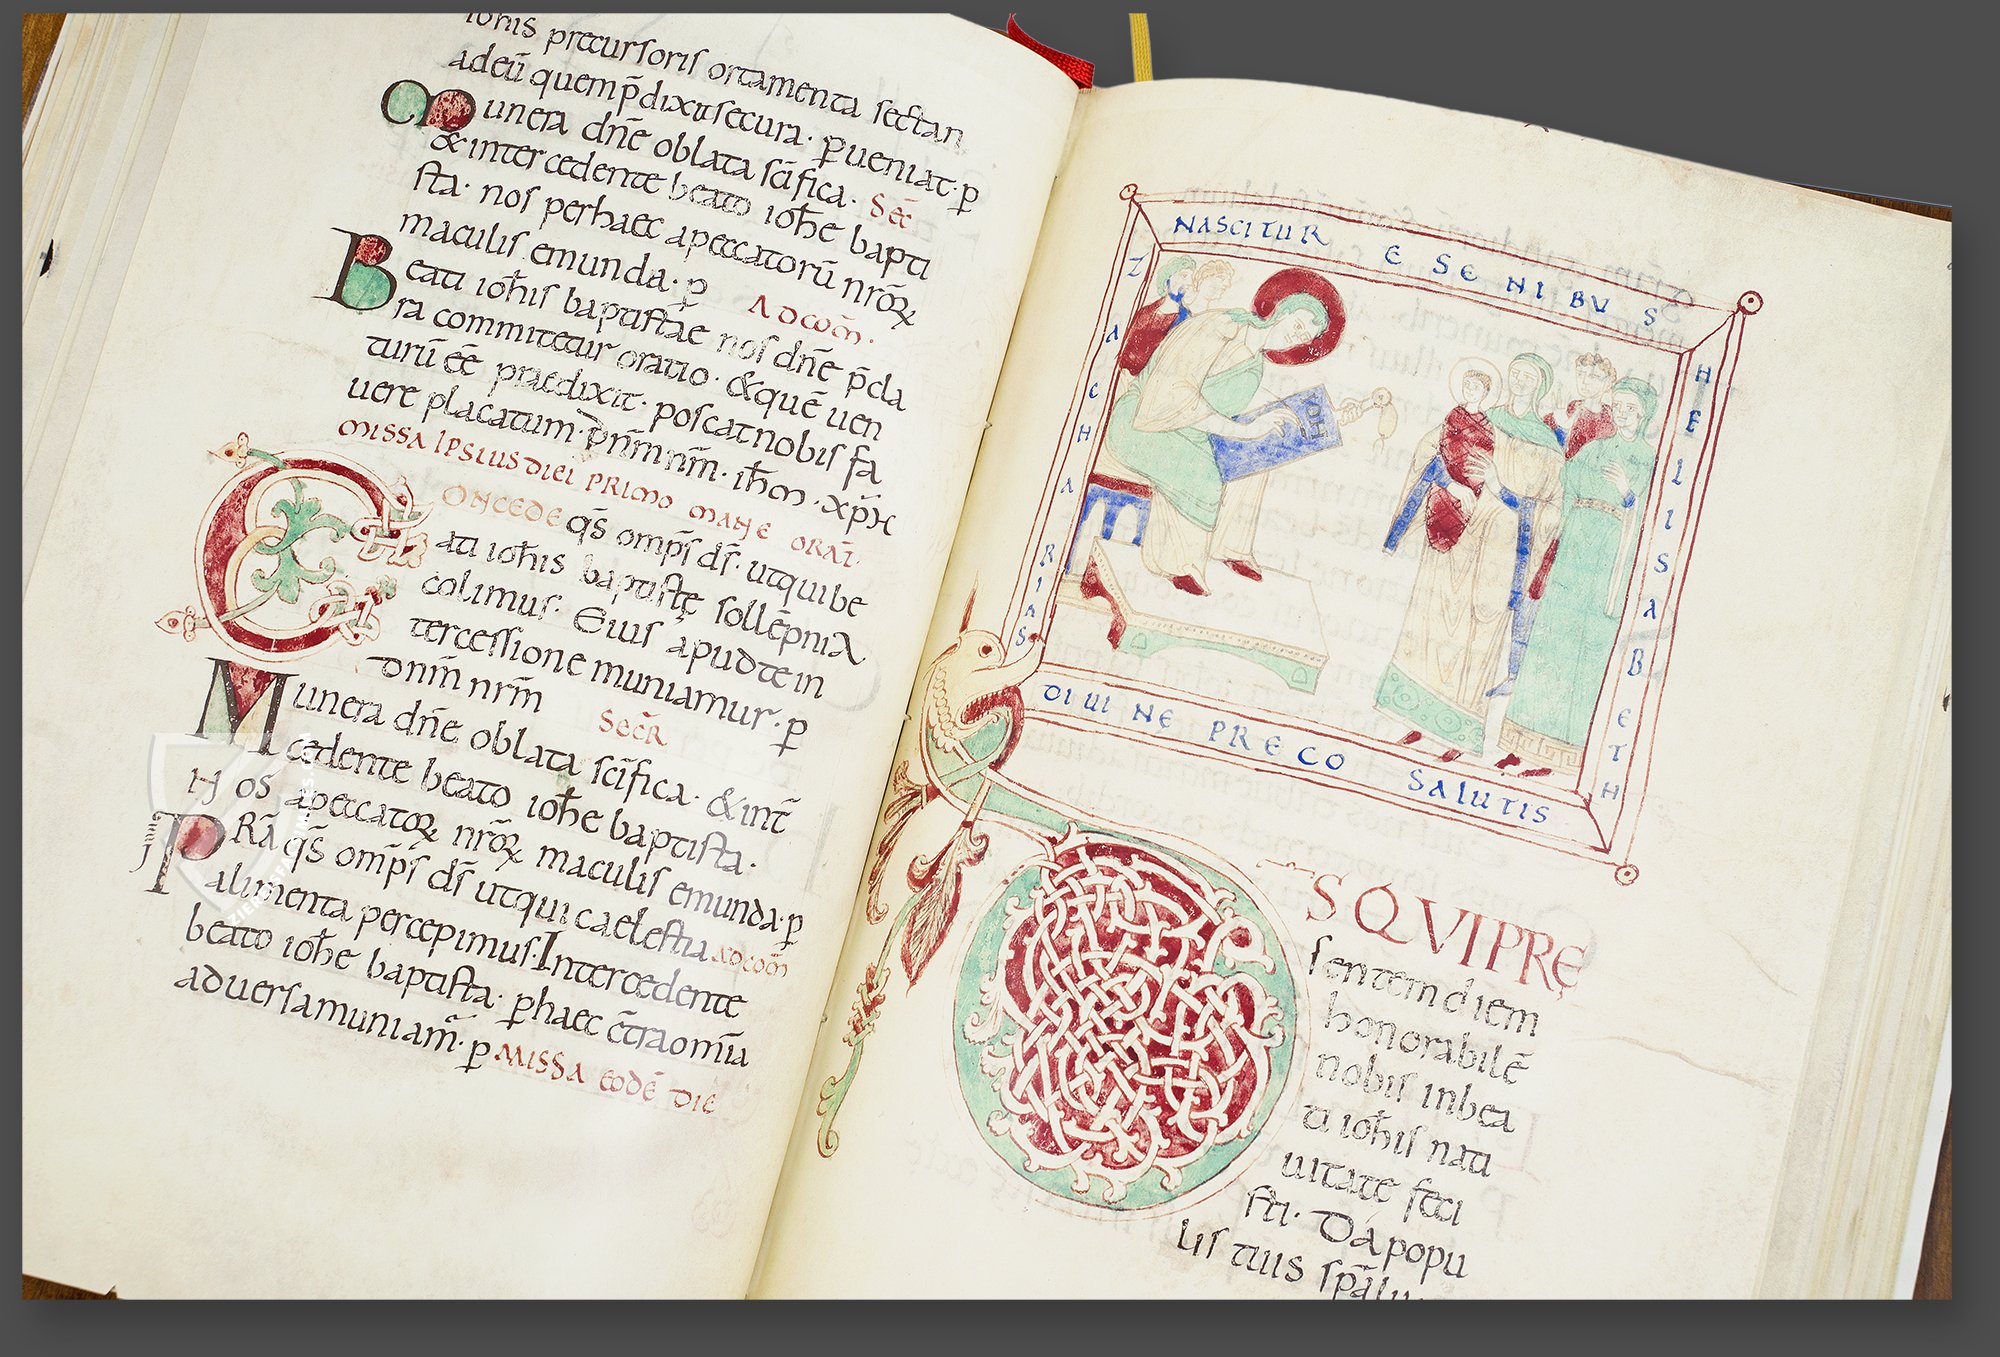 iohis precursoris ortamenta sectan
adeū quem p̄dixit secura· ꝑueniat· ꝑ
Munera dn̄e oblata sc̄ifica· Secr̄
& intercedente beato ioħe bapti
sta· nos perhaec apeccatorū nr̄oꝝ
maculis emunda· ꝑ Adcom̄·
Beati ioħis baptistae nos dn̄e p̄cla
ra commitetur oratio· & quē uen
turū ēē praedixit· poscat nobis fa
uere placatum· Dn̄m nr̄m· iħm· xp̄m
MISSA IPSIUS DIEI PRIMO MANE ORAT̄·
CONCEDE qs̄ omp̄s ds̄· utquibe
ati iohis baptistę sollēpnia
colimus· Eius apud te in
tercessione muniamur· ꝑ
dnm̄ nrm̄ Secr̄
Munera dn̄e oblata sc̄ifica· & int̄
cedente beato ioħe baptista·
NOS apeccatoꝝ nr̄oꝝ maculis emunda· ꝑ
PRA qs̄ omp̄s ds̄ utqui caelestia adcom̄
alimenta percepimus· Intercedente
beato ioħe baptista· ꝑhaec c̄tra om̄ia
aduersa muniam̄· ꝑ MISSA EODĒ DIE
NASCITUR E SENIBUS
ZACHARIAS
HELISABETH
IOH
DIUINĘ PRECO SALUTIS
DS QVI PRĘ
sentem diem
honorabilē
nobis in bea
ti ioħis nati
uitatę feci
sti· Da popu
lis tuis sp̄aliu